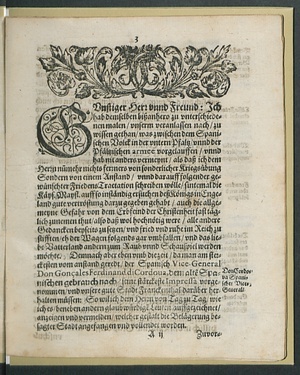 3
Günstiger Herr vnnd Freund: Ich
hab demselben bißanhero zu vnterschiede-
nen malen / vnserm veranlassen nach / zu
wissen gethan / was zwischen dem Spani-
schen Volck in der vntern Pfaltz / vnnd der
Pfältzischen armee vorgelauffen / vnnd
hab mit anders vermeynt / als daß ich dem
Herrn nunmehr nichts ferners von sonderlicher Kriegsübung
Sondern von einem Anstand / vnnd darauff folgender ge-
wünschter Friedens Tractation schreiben wölle / sintemal die
Käys. Mayst. auff so inständig ersuchen deß Königs in Enge-
land gute vertröstung dar zu gegeben gehabt / auch die allge-
meyne Gefahr von dem Erbfeind der Christenheit fast täg-
lich zunemmen thut / also daß wol hochnötig were / alle andere
Gedancken beyseits zu setzen / vnd fried vnd ruhe im Reich zu
stifften / eh der Wagen folgends gar vmbfallen / vnd das lie-
be Vatterland andern zum Raub vnnd Schawspiel werden
möchte / Demnach aber eben vnd der zeit / da man am ster-
ckesten vom anstand geredt / der Spanisch Vice-General
Don Gonçales Ferdinand di Cordoua, dem alte Spa-
nischen gebrauch nach / seine stärckeste Impressa vorge-
nommen / vnd vnsere gute Stadt Franckenthal darüber her-
halten müssen: So wil ich dem Herrn von Tag zu Tag / wie
solches beneben andern glaubwürdig Leuten auffgezeichnet /
anzeigen vnd vermelden / welcher gestalt die Belägerung be-
sagter Stadt angefangen vnd vollendet worden.
Don Cordo-
va Spanis-
cher Vice-
General.
A ij
Zuvor-